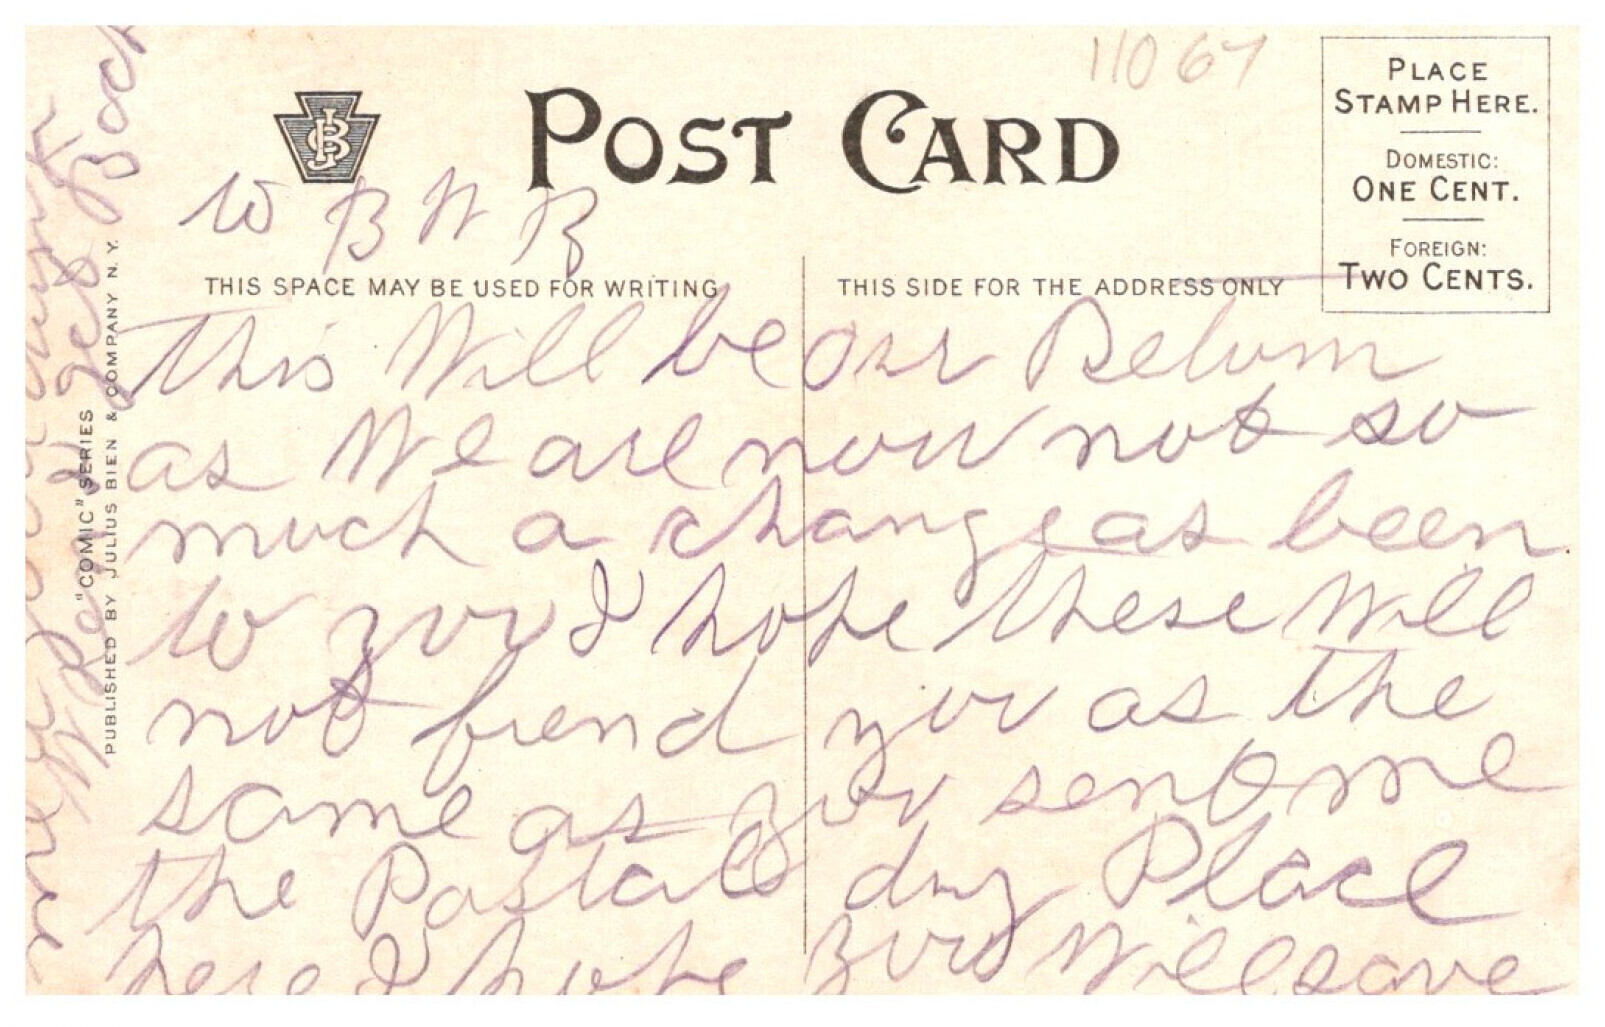 11067
POST CARD
PLACE
STAMP HERE.
DOMESTIC:
ONE CENT.
FOREIGN:
TWO CENTS.
JBS
to B W B
THIS SPACE MAY BE USED FOR WRITING
THIS SIDE FOR THE ADDRESS ONLY
this Will be our
as We are now not so
much a change as been
to you I hope these Will
not fiend you as the
same as you send me
the Postals Place
here I hope you Will save
"COMIC" SERIES
PUBLISHED BY JULIUS BIEN & COMPANY N.Y.
get Back